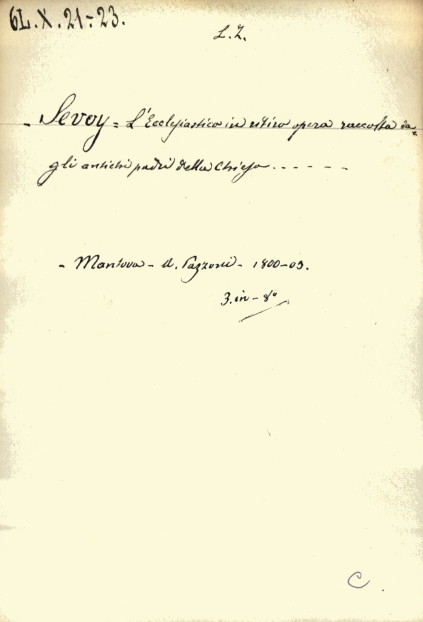 6L.X.21-23.
L.Z.
- Sevoy = L'Ecclesiastico in ritiro opera raccolta da=
gli antichi padri della Chiesa - - - - - -
- Mantova - A. Pazzoni - 1800-03.
3. in - 8º
C.